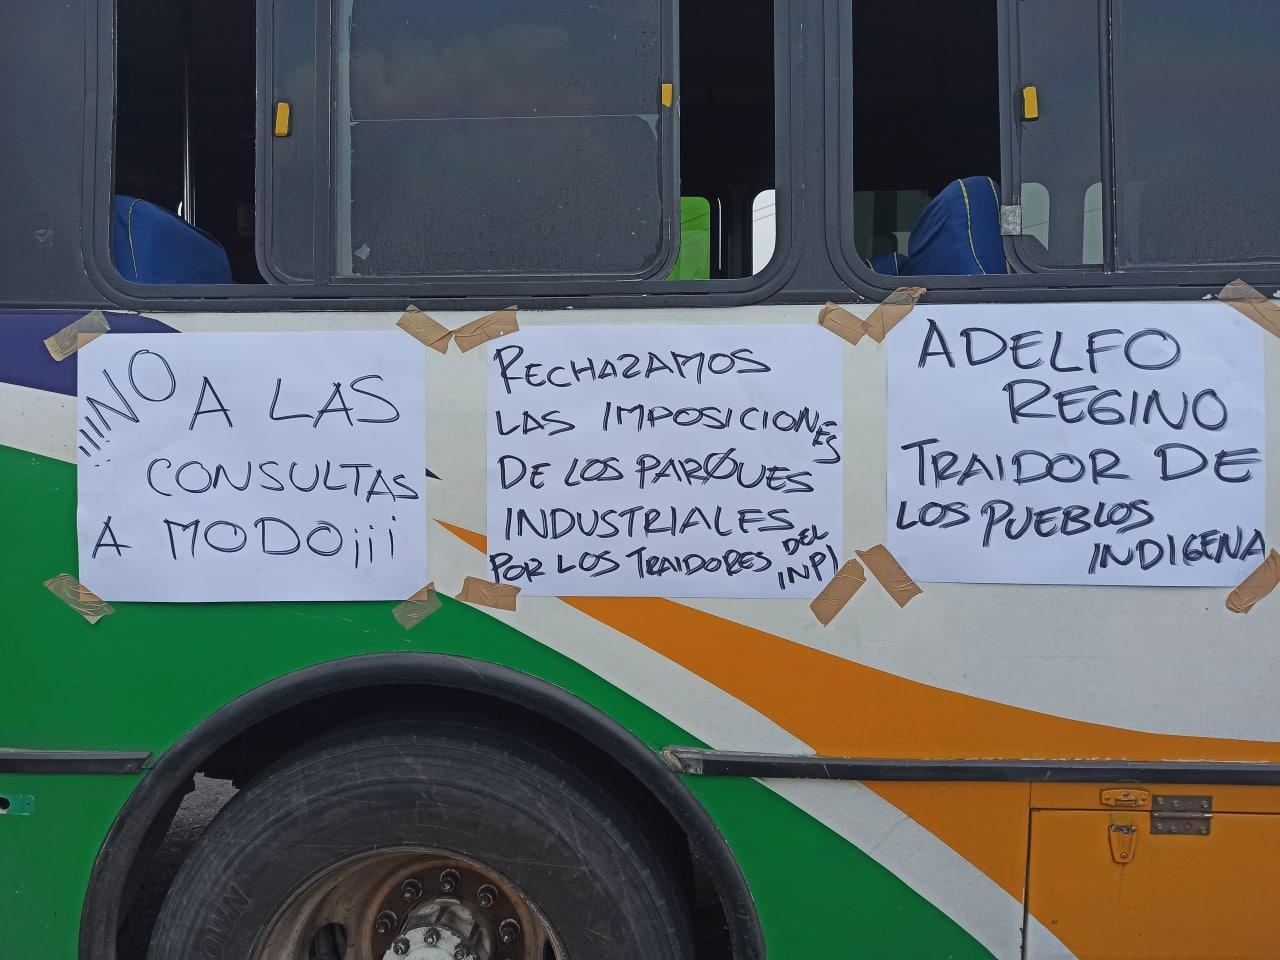 ¡¡¡NO A LAS
CONSULTAS
A MODO¡¡¡
RECHAZAMOS
LAS IMPOSICIONES
DE LOS PARQUES
INDUSTRIALES
POR LOS TRAIDORES DEL INPI
ADELFO
REGINO
TRAIDOR DE
LOS PUEBLOS
INDIGENA